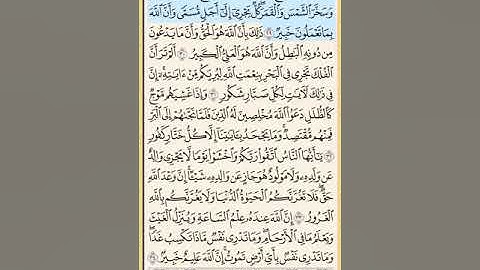 وَسَخَّرَ الشَّمْسَ وَالْقَمَرَ كُلٌّ يَجْرِي إِلَى أَجَلٍ مُّسَمًّى وَأَنَّ اللَّهَ
بِمَا تَعْمَلُونَ خَبِيرٌ ٢٩ ذَلِكَ بِأَنَّ اللَّهَ هُوَ الْحَقُّ وَأَنَّ مَا يَدْعُونَ
مِن دُونِهِ الْبَاطِلُ وَأَنَّ اللَّهَ هُوَ الْعَلِيُّ الْكَبِيرُ ٣٠ أَلَمْ تَرَ أَنَّ
الْفُلْكَ تَجْرِي فِي الْبَحْرِ بِنِعْمَتِ اللَّهِ لِيُرِيَكُم مِّنْ آيَاتِهِ إِنَّ
فِي ذَلِكَ لَآيَاتٍ لِّكُلِّ صَبَّارٍ شَكُورٍ ٣١ وَإِذَا غَشِيَهُم مَّوْجٌ
كَالظُّلَلِ دَعَوُا اللَّهَ مُخْلِصِينَ لَهُ الدِّينَ فَلَمَّا نَجَّاهُمْ إِلَى الْبَرِّ
فَمِنْهُم مُّقْتَصِدٌ وَمَا يَجْحَدُ بِآيَاتِنَا إِلَّا كُلُّ خَتَّارٍ كَفُورٍ
٣٢ يَا أَيُّهَا النَّاسُ اتَّقُوا رَبَّكُمْ وَاخْشَوْا يَوْمًا لَّا يَجْزِي وَالِدٌ
عَن وَلَدِهِ وَلَا مَوْلُودٌ هُوَ جَازٍ عَن وَالِدِهِ شَيْئًا إِنَّ وَعْدَ اللَّهِ
حَقٌّ فَلَا تَغُرَّنَّكُمُ الْحَيَاةُ الدُّنْيَا وَلَا يَغُرَّنَّكُم بِاللَّهِ
الْغَرُورُ ٣٣ إِنَّ اللَّهَ عِندَهُ عِلْمُ السَّاعَةِ وَيُنَزِّلُ الْغَيْثَ
وَيَعْلَمُ مَا فِي الْأَرْحَامِ وَمَا تَدْرِي نَفْسٌ مَّاذَا تَكْسِبُ غَدًا
وَمَا تَدْرِي نَفْسٌ بِأَيِّ أَرْضٍ تَمُوتُ إِنَّ اللَّهَ عَلِيمٌ خَبِيرٌ ٣٤